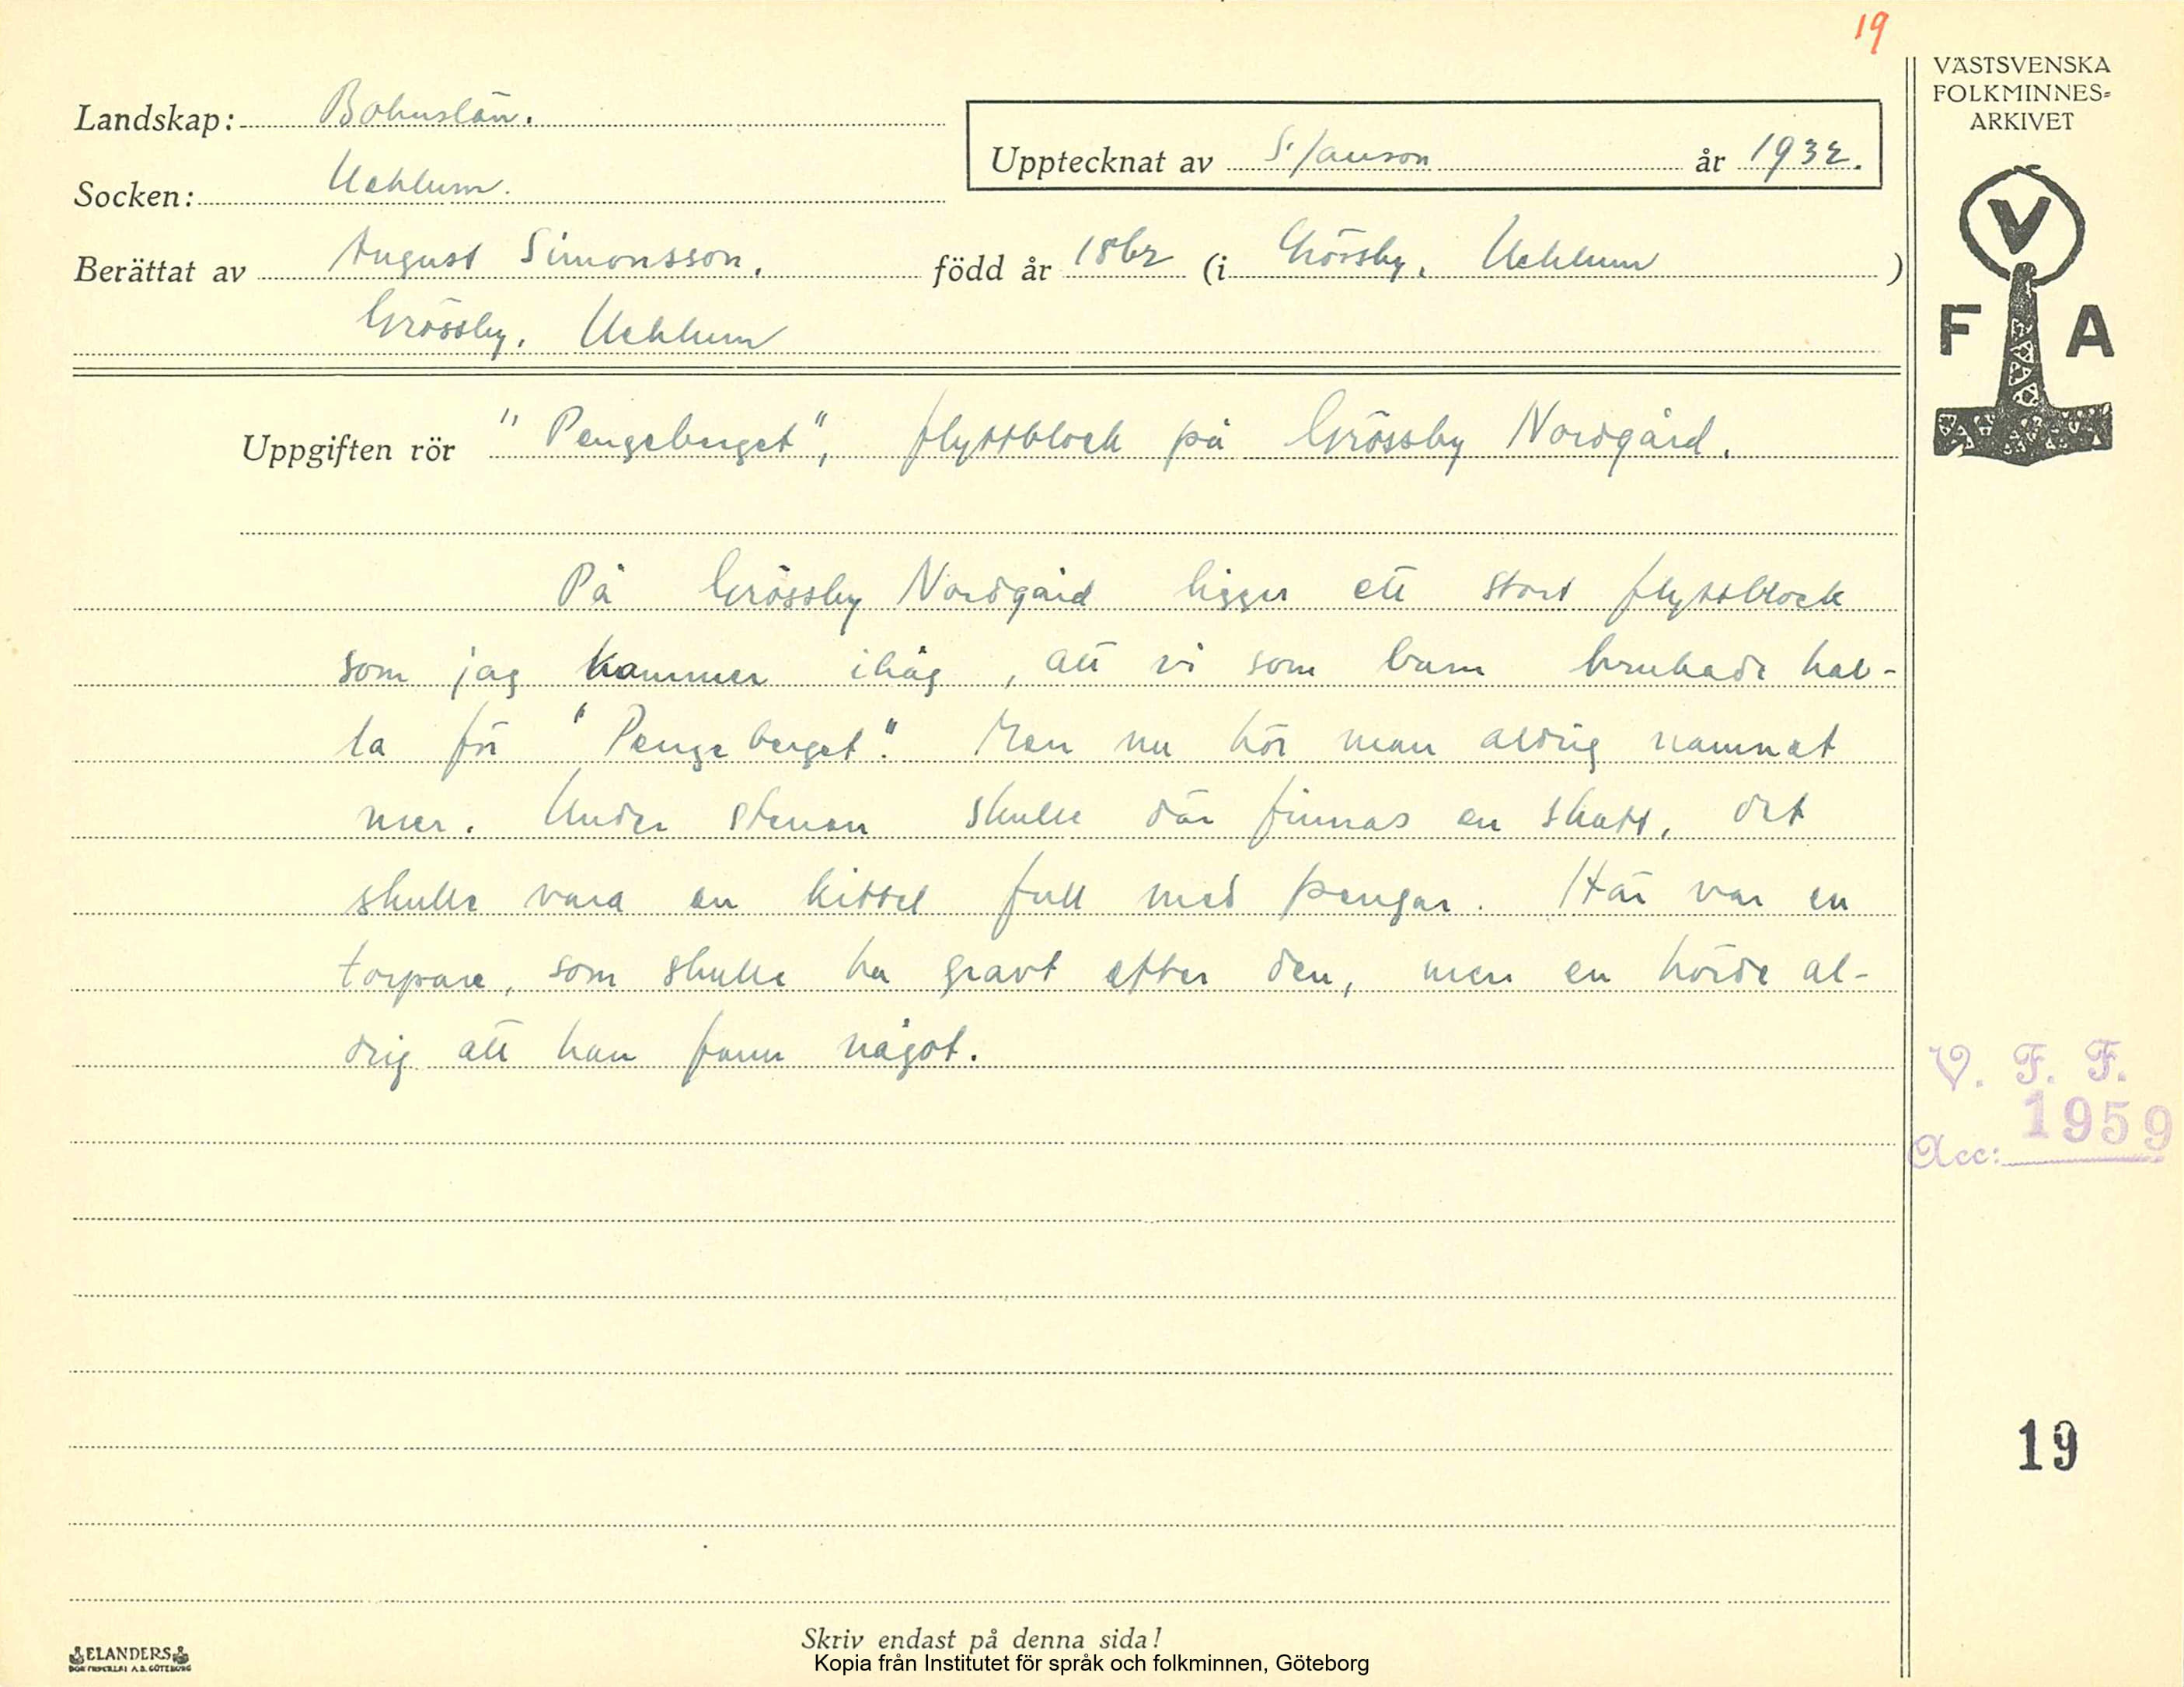 19
VÄSTSVENSKA
FOLKMINNES=
ARKIVET
Landskap: Bohuslän.
Upptecknat av S. Janson år 1932.
Socken: Ucklum.
Berättat av August Simonsson. född år 1862 (i Grössby, Ucklum )
Grössby, Ucklum
V
F A
Uppgiften rör "Pengeberget", flyttblock på Grössby Nordgård.
På Grössby Nordgård ligger ett stort flyttblock
som jag kommer ihåg, att vi som barn brukade kal-
la för "Pengeberget". Men nu hör man aldrig namnet
mer. Under stenen skulle där finnas en skatt, det
skulle vara en kittel full med pengar. Här var en
torpare, som skulle ha gravt efter den, men en hörde al-
drig att han fann något.
V. F. F.
1959
Acc:
19
Skriv endast på denna sida!
ELANDERS
BOKTRYCKERI A.B. GÖTEBORG
Kopia från Institutet för språk och folkminnen, Göteborg